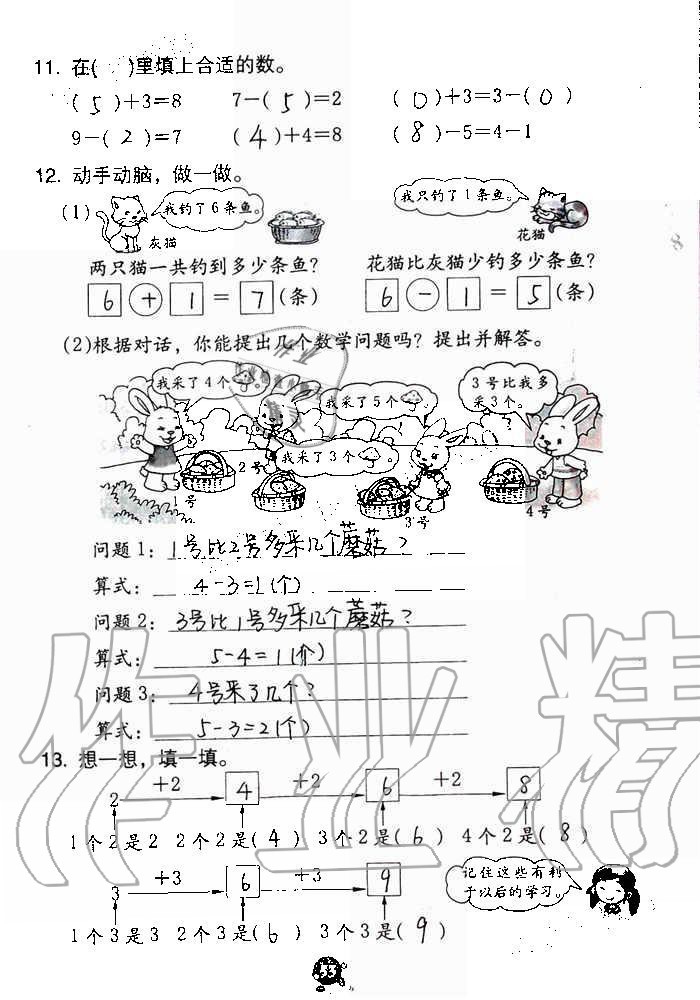 11. 在( )里填上合适的数。
(5)+3=8 7-(5)=2 (0)+3=3-(0)
9-(2)=7 (4)+4=8 (8)-5=4-1
12. 动手动脑，做一做。
(1) 我钓了6条鱼。 我只钓了1条鱼。
灰猫 花猫
两只猫一共钓到多少条鱼? 花猫比灰猫少钓多少条鱼?
6+1=7(条) 6-1=5(条)
(2)根据对话，你能提出几个数学问题吗? 提出并解答。
我采了4个 我采了5个 3号比我多采3个。
我采了3个
1号 2号 3号 4号
问题1: 1号比2号多采几个蘑菇?
算式: 4-3=1(个)
问题2: 3号比1号多采几个蘑菇?
算式: 5-4=1(个)
问题3: 4号采了几个?
算式: 5-3=2(个)
13. 想一想，填一填。
2 +2 4 +2 6 +2 8
1个2是2 2个2是(4) 3个2是(6) 4个2是(8)
3 +3 6 +3 9
记住这些有利于以后的学习。
1个3是3 2个3是(6) 3个3是(9)
作业精